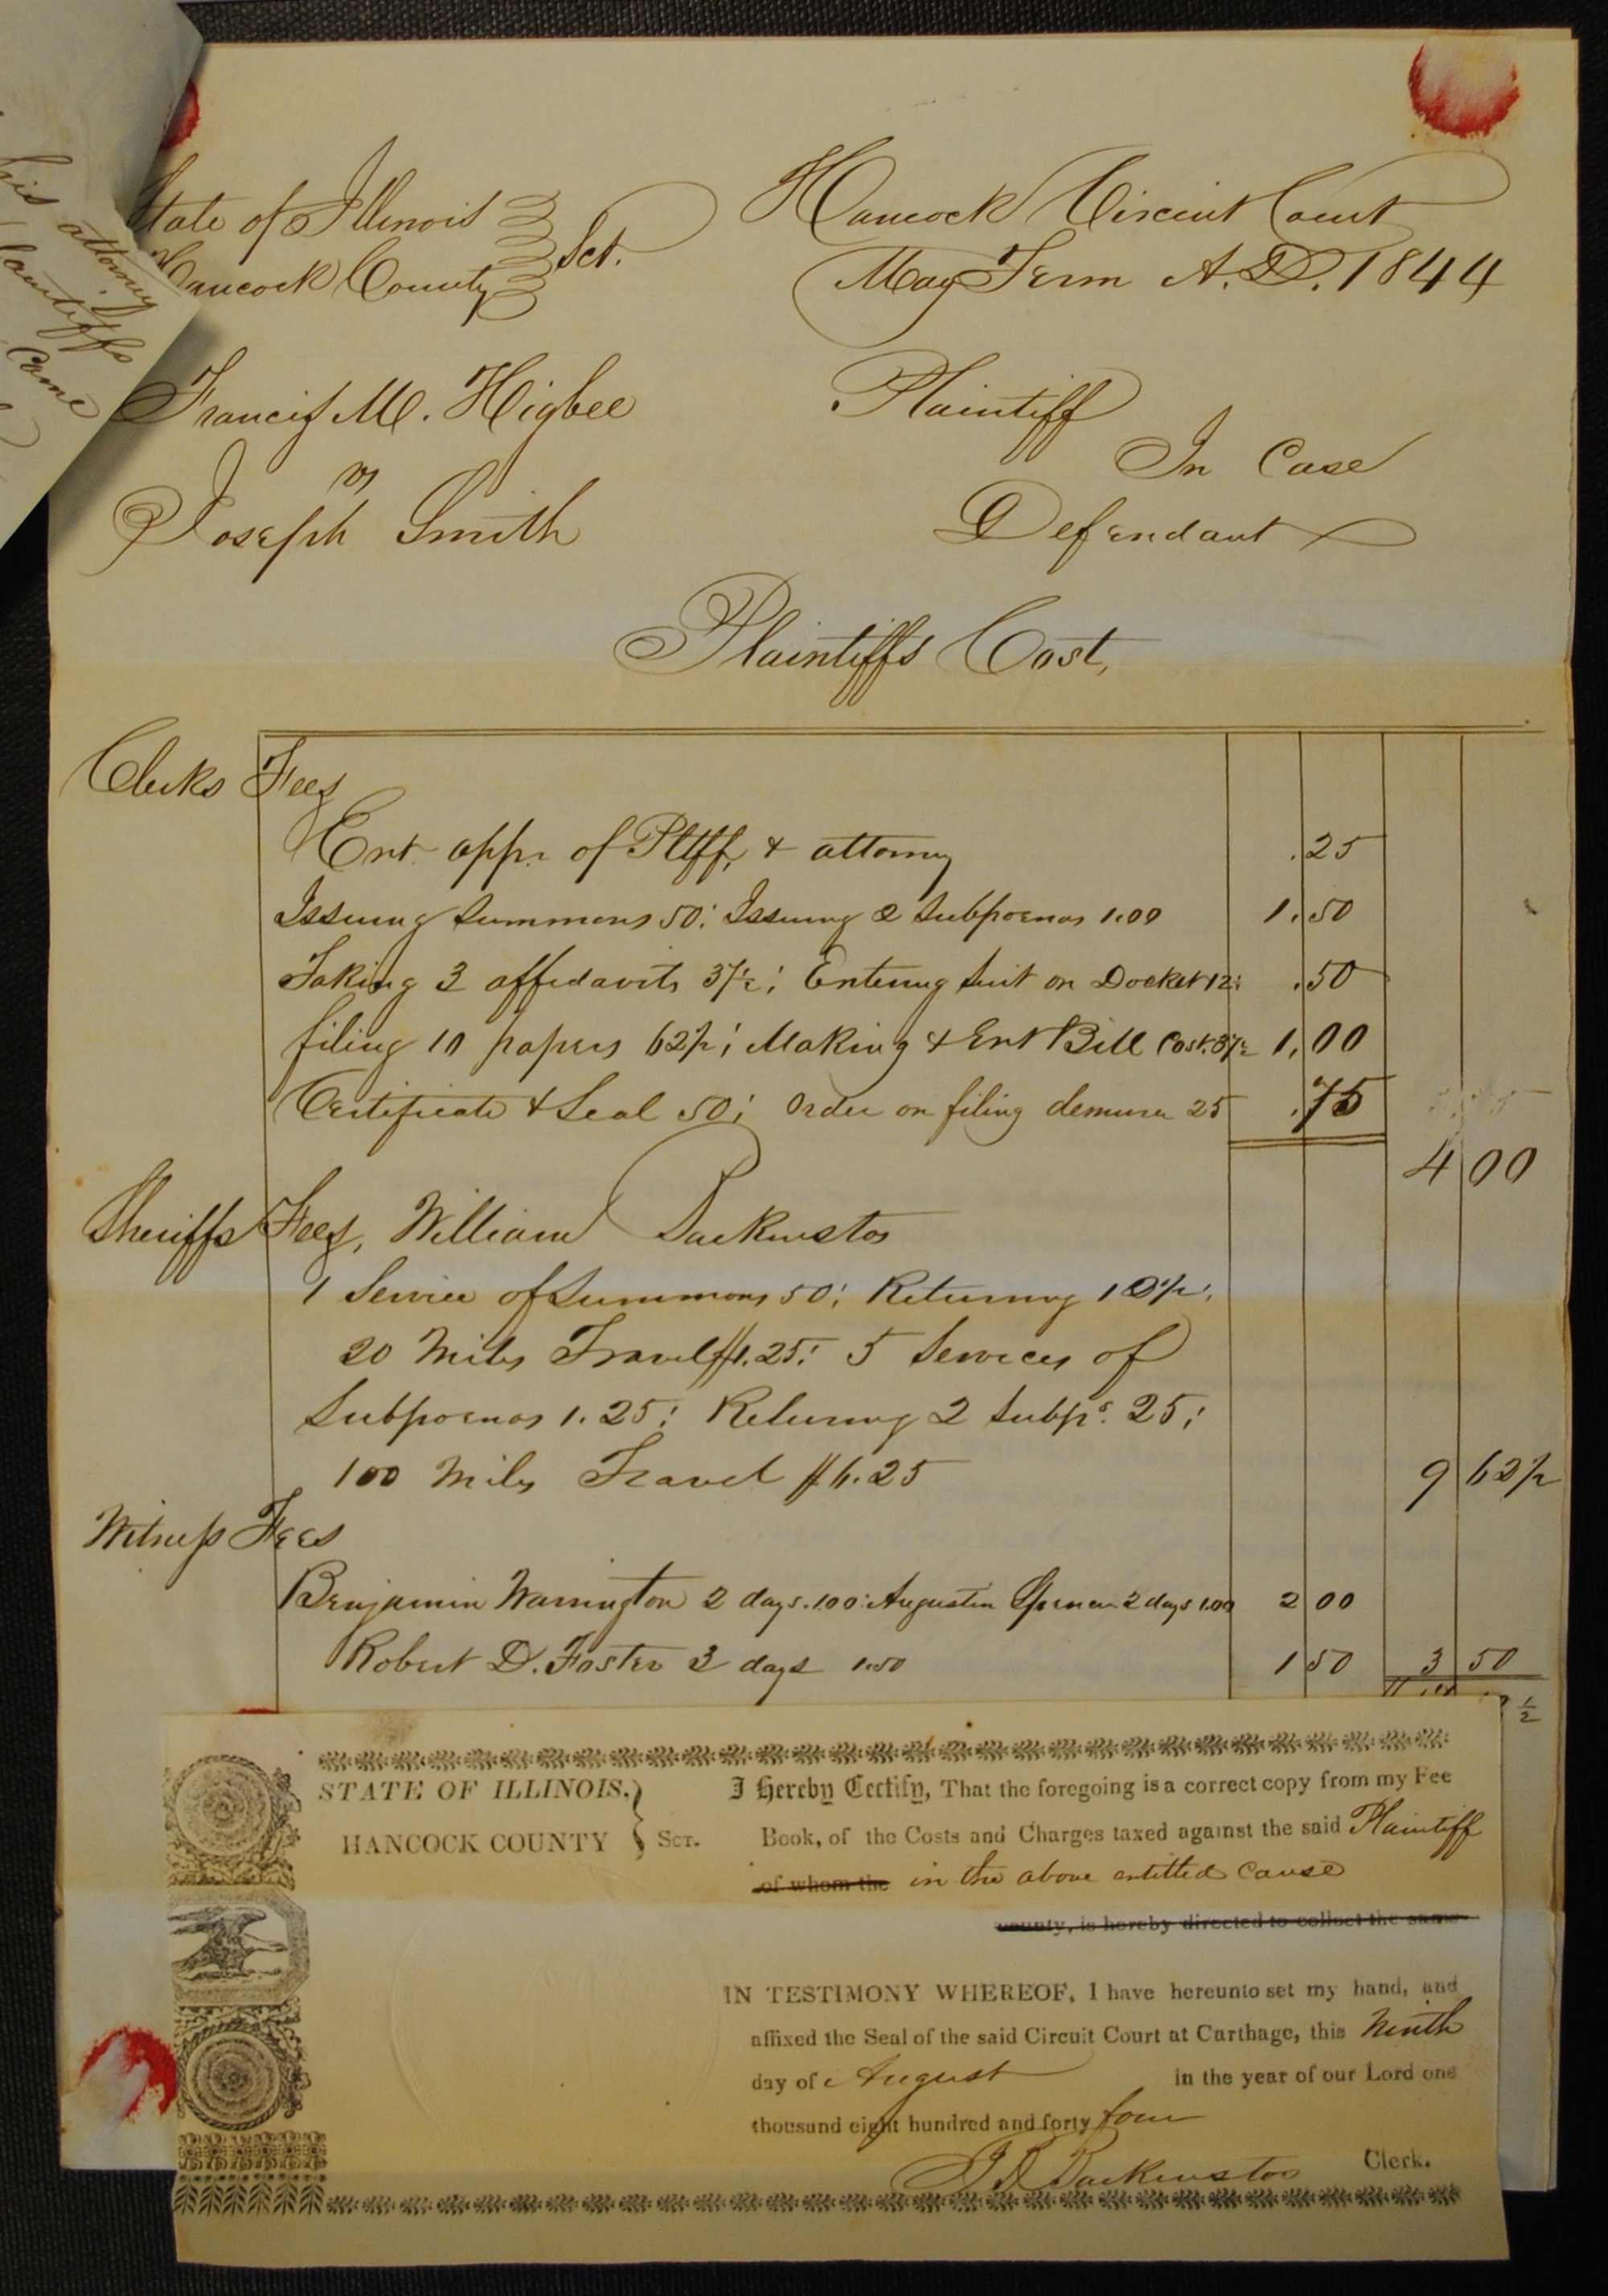 his attorney
Plaintiffs
Came
State of Illinois
Hancock County Sct.
Hancock Circuit Court
May Term A.D. 1844
Francis M. Higbee Plaintiff
vs In Case
Joseph Smith Defendant
Plaintiffs Cost,
Clerks Fees
Ent. appr. of Pltff, & attorney .25
Issuing Summons 50; Issuing 2 Subpoenas 1.00 1.50
Taking 3 affidavits 37½; Entering Suit on Docket 12½ .50
filing 10 papers 62½; Making & Ent Bill Cost 37½ 1.00
Certificate & Seal 50; Order on filing demurer 25 .75
4 00
Sheriffs Fees, William Backenstos
1 Service of Summons 50; Returning 12½;
20 Miles Travel $1.25; 5 Services of
Subpoenas 1.25; Returning 2 Subps. 25;
100 Miles Travel $6.25 9 62½
Witness Fees
Benjamin Warrington 2 days. 1.00; Augustin Spencer 2 days 1.00 2 00
Robert D. Foster 3 days 1.50 1 50 3 50
½
STATE OF ILLINOIS,
HANCOCK COUNTY SCT.
I Hereby Certify, That the foregoing is a correct copy from my Fee
Book, of the Costs and Charges taxed against the said Plaintiff
of whom the in the above entitled cause
county, is hereby directed to collect the same
IN TESTIMONY WHEREOF, I have hereunto set my hand, and
affixed the Seal of the said Circuit Court at Carthage, this Ninth
day of August in the year of our Lord one
thousand eight hundred and forty four
J B Backenstos Clerk.